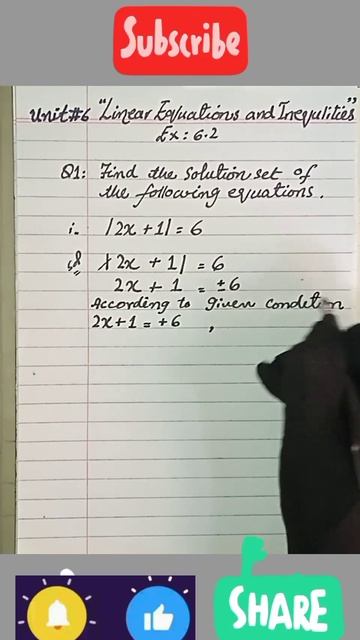 Subscribe
Unit#6 "Linear Equations and Inequlities"
Ex: 6.2
Q1: Find the solution set of
the following equations.
i. |2x + 1| = 6
Sol |2x + 1| = 6
2x + 1 = ±6
According to given condition
2x+1 = +6 ,
SHARE